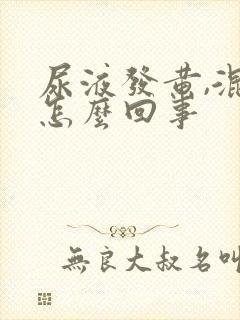 尿液發黃,混
怎麼回事
無良大叔名叫